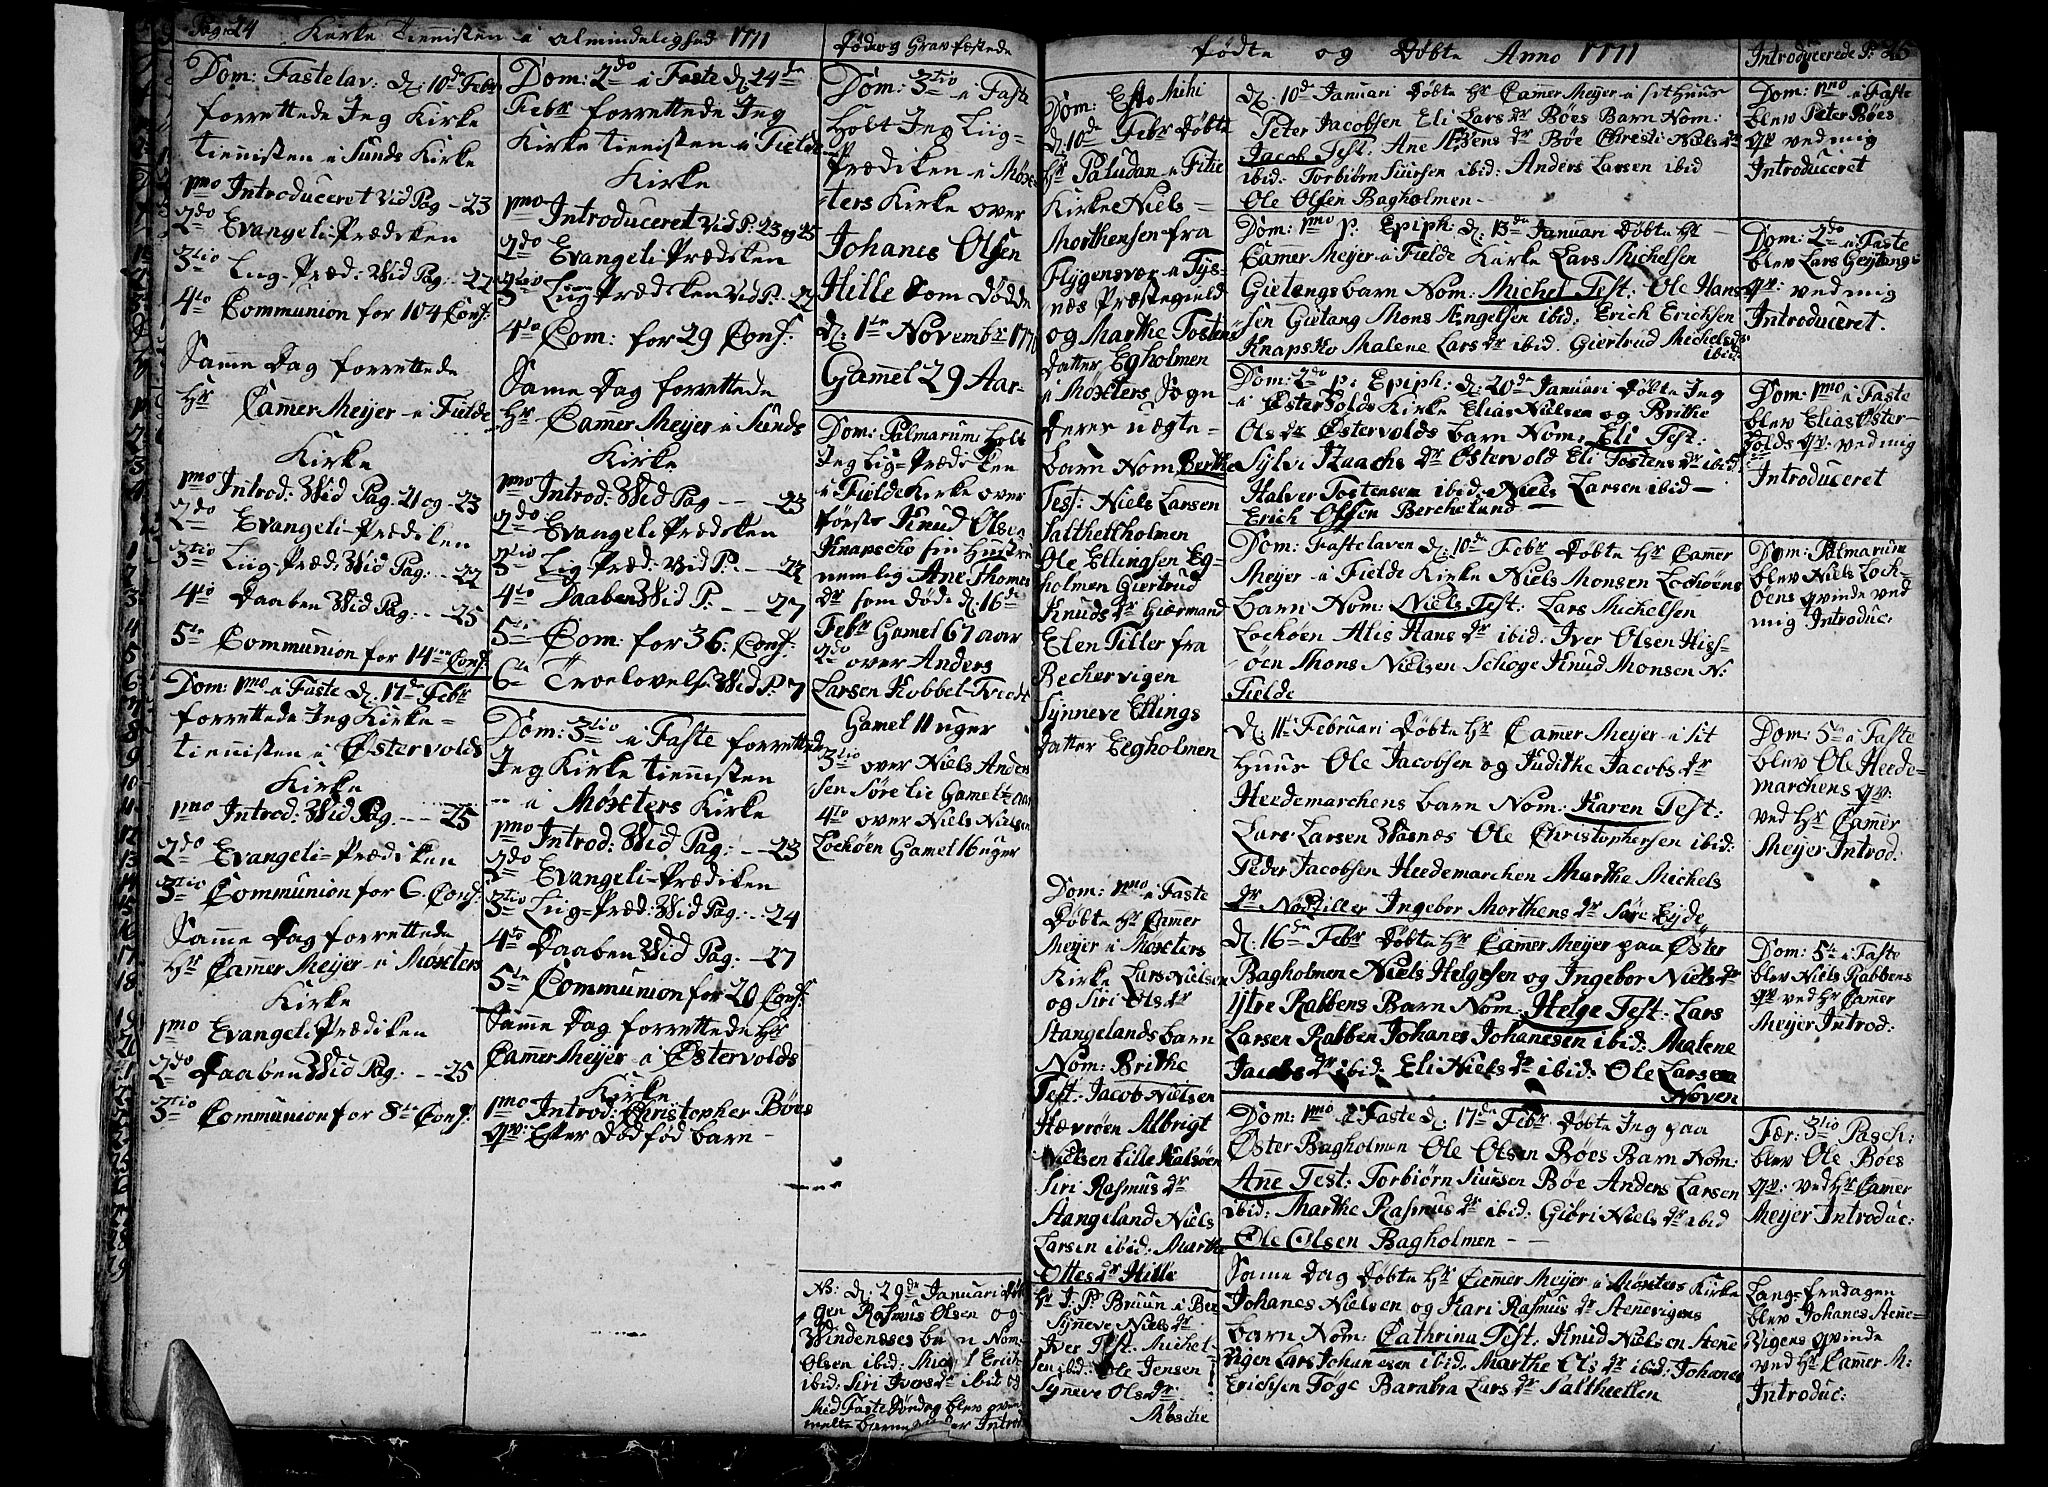 Pag: 24 Kirke Tiennisten i almindelighed 1771
Døde og Gravfæstede
Dom: Fastelav: d: 10de Febr
forrettede Jeg Kirke
Tiennisten i Sunds Kirke
1mo Introduceret Vid Pag - 23
2do Evangeli-Prædiken
3tio Liig-Præd: Wid Pag: - 27
4to Communion for 104 Conf:
Samme Dag forrettede
Hr Cammer Meyer i Fielde
Kirke
1mo Introd: Wid Pag: 21 og - 23
2do Evangeli-Prædiken
3tio Liig-Præd: Wid Pag: - 22
4to Daaben Wid Pag: - - 25
5te Communion for 14 Conf:
Dom: 1mo i Faste d: 17de Febr
forrettede Jeg Kirke-
tiennisten i Østervolds
Kirke
1mo Introd: Wid Pag: - - 25
2do Evangeli-Prædiken
3tio Communion for 6. Conf:
Samme Dag forrettede
Hr Cammer Meyer i Møxters
Kirke
1mo Evangeli Prædiken
2do Daaben Wid Pag: - - 25
3tio Communion for 8te Conf:
Dom: 2do i Faste d: 24de
Febr forrettede Jeg
Kirke tiennisten i Fielde
Kirke
1mo Introduceret Vid P: 23 og 25
2do Evangeli Prædiken
3tio Liig Prædiken Vid P: - 27
4to Com: for 29 Conf:
Samme Dag forrettede
Hr Cammer Meyer i Sunds
Kirke
1mo Introd: Wid Pag - - - 23
2do Evangeli Prædiken
3tio Liig Præd: Vid P. - - 22
4to Daaben Wid P. - - 27
5te Com: for 36: Conf:
6te Troelovels: Wid P. 7
Dom: 3tio i Faste forrettede
Jeg Kirke tiennisten
i Møxters Kirke
1mo Introd: Wid Pag: - - 23
2do Evangeli-Prædiken
3tio Liig-Præd: Wid Pag: - - 24
4to Daaben Wid Pag: - 27
5te Communion for 20 Conf:
Samme Dag forrettede Hr
Cammer Meyer i Østervolds
Kirke
1mo Introd: Christopher Bøes
qv: Efter Død fød barn -
Dom: 3tio i Faste
Holt Jeg Liig-
Prædiken i Møx-
ters Kirke over
Johanes Olsen
Hille som Døde
d: 1te Novembr 1770
Gammel 29 Aar-
Dom: Palmarum Holt
Jeg Liig-Prædiken
i Fielde Kirke over
første Knud Olsen
Knapscho sin Hustru
nemlig Ane Thomes
dr som døde d: 16de
Febr Gamel 67 aar
2do over Anders
Larsen Kobbel-Tvedt
Gamel 11 uger
3tio over Niels Anders
sen Søre Lie Gamel aar
4to over Niels Nielsen
Lochøen Gamel 16 uger
NB: d: 29de Januari
gen Rasmus Olsen og
Windenæses barn Nom:
Olsen ibid: Erich
ibid: Siri Ivers dr ibid og
Mid Faste Søndag blev
Introd
Fødte og Døbte Anno 1771
Introducerede P: 25
Dom: Esto Mihi
d: 10de Febr Døbte
Hr Paludan i Fitie
Kirke Niels
Morthensen fra
Flygensvær i Tys-
næs Præstegield
og Marthe Tostens
datter Egholmen
i Møxters Sogn
deres uægte-
barn Nom: Berthe
Test: Niels Larsen
Salthelholmen
Ole Ellingsen Eg-
holmen Giertrud
Knuds dr Giærmand
Elen Tiller fra
Bechervigen
Synneve Ellings
datter Eegholmen
Dom: 1mo i Faste
Døbte Hr Camer
Meyer i Moxters
Kirke Lars Nielsen
og Siri Ols dr
Stangelands barn
Nom: Brithe
Test: Jacob Nielsen
Hævrøen Albrigt
Nielsen Lille Kalsøen
Siri Rasmus dr
Stangeland Niels
Larsen ibid: Marthe
Ottes dr Hille
Hr J. P. Bruun i Ber
Synneve Niels dr
Iver Test: Michel-
sen ibd: Ole Jensen
Synneve Ols dr
Møsthe
d: 10de Januari Døbte Hr Camer Meyer i sit Huus
Peter Jacobsen Eli Lars dr Bøes Barn Nom:
Jacob Test: Ane Assens dr Bøe Chresti Niels dr
ibid: Torbiørn Siursen ibid: Anders Larsen ibid
Ole Olsen Bagholmen -
Dom: 1mo p. Epiph: d: 13de Januari Døbte Hr
Camer Meyer i Fielde Kirke Lars Michelsen
Gietangs barn Nom: Michel Test: Ole Hans
sen Gietang Mons Engelsen ibid: Erich Erichsen
Knapsko Malene Lars dr ibid. Giertrud Michels dr
ibid
Dom: 2do p: Epiph: d: 20de Januari Døbte Jeg
i Østervolds Kirke Elias Nielsen og Brithe
Ols dr Østervolds barn Nom: Eli Test:
Sylvi Haachs dr Østervold Eli Tostens dr ibid
Halver Tostensen ibid: Niels Larsen ibid -
Erich Olsen Berchelund -
Dom: Fastelaven d: 10de Febr Døbte Hr Camer
Meyer i Fielde Kirke Niels Monsen Lochøens
barn Nom: Niels Test: Lars Michelsen
Lochøen Alis Hans dr ibid: Iver Olsen His-
øen Mons Nielsen Schoge Knud Monsen N:
Fielde
d: 11te Februari Døbte Hr Cammer Meyer i sit
Huus Ole Jacobsen og Judithe Jacobs dr
Heedemarchens barn Nom: Karen Test:
Lars Larsen Wasnæs Ole Christophersen ibid:
Peder Jacobsen Heedemarchen Marthe Michels
dr Nøstller Ingebor Morthens dr Søre Eyde
d: 16de Febr Døbte Hr Cammer Meyer paa Øster
Bagholmen Niels Helgesen og Ingebor Niels dr
Ijtre Rabbens Barn Nom: Helge Test: Lars
Larsen Rabben Johanes Johanesen ibid: Malene
Jacobs dr ibid: Eli Niels dr ibid: Ole Larsen
Høven
Dom: 1mo i Faste d: 17de Febr Døbte Jeg paa
Øster Bagholmen Ole Olsen Bøes Barn Nom:
Ane Test: Torbiørn Siursen Bøe Anders Larsen
ibid: Marthe Rasmus dr ibid: Giøri Niels dr ibid
Ole Olsen Bagholmen - -
Same Dag Døbte Hr Cammer Meyer i Moxters Kirke
Johanes Nielsen og Kari Rasmus dr Stenevigens
barn Nom: Cathrina Test: Knud Nielsen Stene
vigen Lars Johanesen ibid. Marthe Ols dr ibid: Johanes
Erichsen Føge Barabra Lars dr Saltheellen
Dom: 1mo i Faste
blev Peter Bøes
qv ved mig
Introduceret
Dom: 2do i Faste
blev Lars Geitangs
qv: ved mig
Introduceret.
Dom: 1mo i Faste
blev Elias Øster-
volds qv: ved mig
Introduceret
Dom: Palmarum
blev Niels Loch-
øens qvinde ved
mig Introduc:
Dom: 5te i Faste
blev Ole Heede-
marchens qv:
ved Hr Camer
Meyer Introd:
Dom: 5te i Faste
blev Niels Rabbens
qv ved Hr Camer
Meyer Introd:
Fær: 3tio Pasch:
blev Ole Bøes
qv: ved Hr Camer
Meyer Introduc:
Lang-fredagen
blev Johanes Stene-
vigens qvinde
ved Hr Camer M:
Introduc: